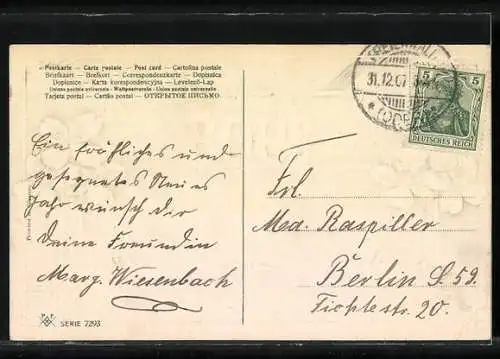 Postkarte — Carte postale — Post card — Cartolina postale
Briefkaart — Brefkort — Correspondenzkarte — Dopisnica
Dopisnice — Karta korespondencyjna — Levelező-Lap
Unione postale universale — Weltpostverein — Union postale universelle
Tarjeta postal — Cartão postal — ОТКРЫТОЕ ПИСЬМО
31.12.07
5 5
DEUTSCHES REICH
Ein fröhliches und
gesegnetes Neues
Jahr wünscht dir
Deine Freundin
Marg. Wiesenbach
Frl.
Raspiller
Berlin S 59.
Fichtestr. 20.
SERIE 7293